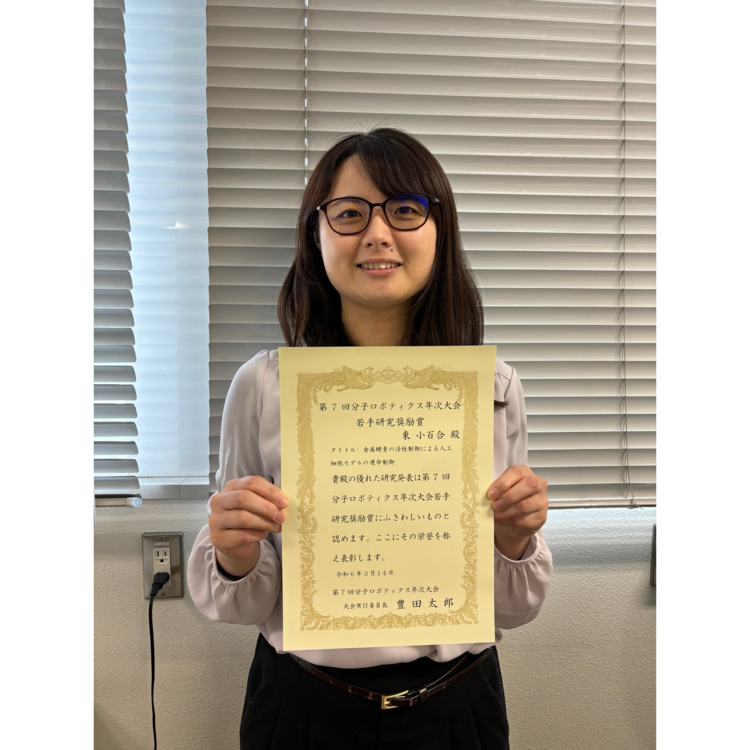 第7回分子ロボティクス年次大会
若手研究奨励賞
東 小百合 殿
タイトル: 金属酵素の活性制御による人工
細胞モデルの運命制御
貴殿の優れた研究発表は第7回
分子ロボティクス年次大会若手
研究奨励賞にふさわしいものと
認めます。ここにその栄誉を称
え表彰します。
令和6年3月14日
第7回分子ロボティクス年次大会
大会実行委員長 豊田太郎